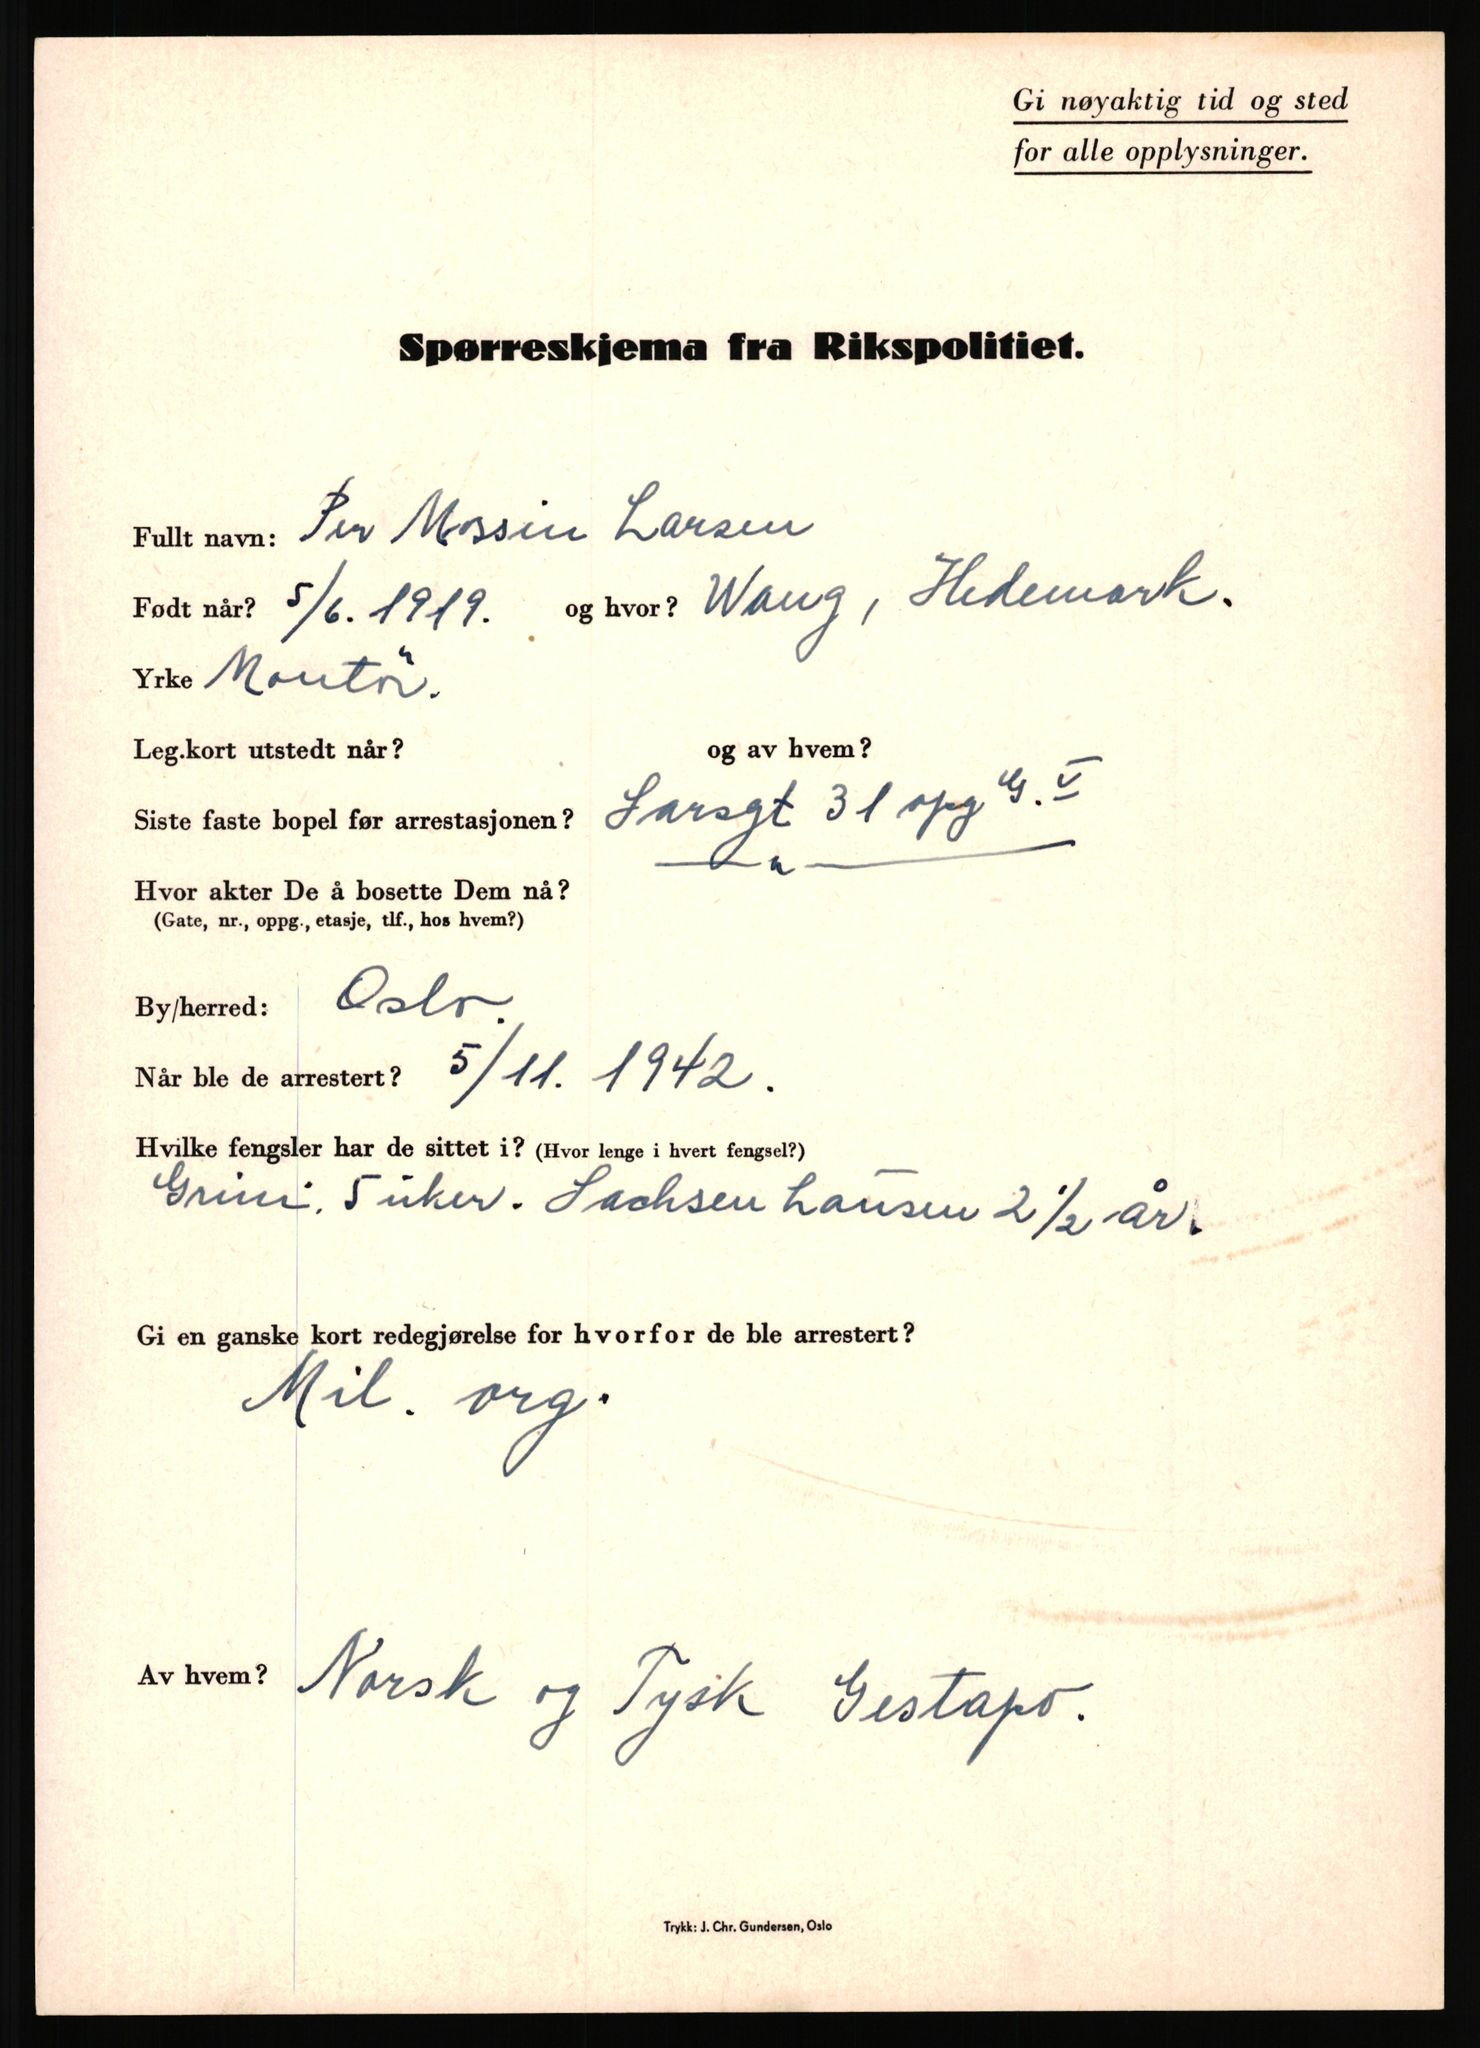 Gi nøyaktig tid og sted
for alle opplysninger.
Spørreskjema fra Rikspolitiet.
Fullt navn: Per Mossin Larsen
Født når? 5/6. 1919. og hvor? Wang, Hedemark.
Yrke Montör.
Leg.kort utstedt når? og av hvem?
Siste faste bopel før arrestasjonen? Larsgt 31 opg G. V
Hvor akter De å bosette Dem nå? — " —
(Gate, nr., oppg., etasje, tlf., hos hvem?)
By/herred: Oslo.
Når ble de arrestert? 5/11. 1942.
Hvilke fengsler har de sittet i? (Hvor lenge i hvert fengsel?)
Grini. 5 uker. Sachsenhausen 2 1/2 år.
Gi en ganske kort redegjørelse for hvorfor de ble arrestert?
Mil. org.
Av hvem? Norsk og Tysk Gestapo.
Trykk: J. Chr. Gundersen, Oslo